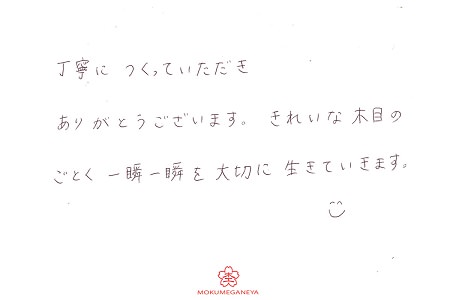 丁寧に つくっていただき
ありがとうございます。 きれいな木目の
ごとく 一瞬一瞬を 大切に 生きていきます。
MOKUMEGANEYA